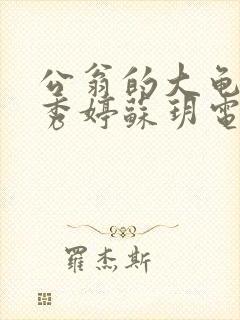 公翁的大龟
秀婷蘇玥電
羅杰斯